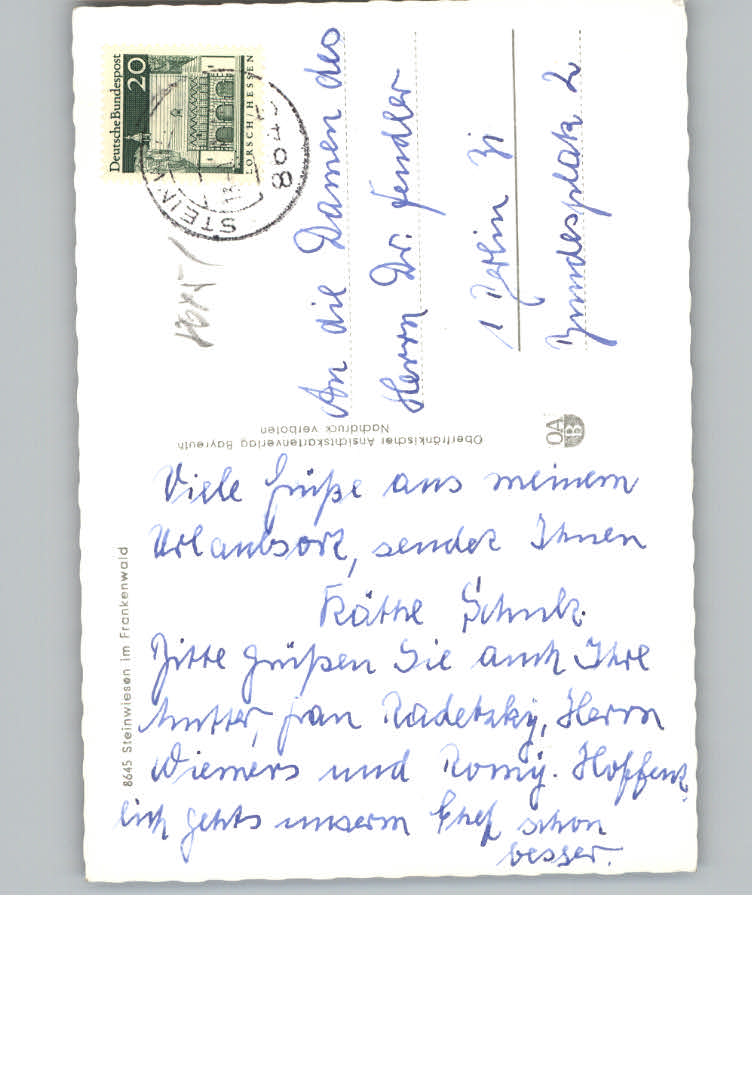 Deutsche Bundespost
20
LORSCH/HESSEN
STEINW
8645
An die Damen des
Herrn Dr. Fendler
1 Berlin 31
Bundesplatz 2
Oberfränkischer Ansichtskartenverlag Bayreuth
Nachdruck verboten
OA
B
8645 Steinwiesen im Frankenwald
Viele Grüße aus meinem
Urlaubsort, sendet Ihnen
Käthe Schulz.
Bitte grüßen Sie auch Ihre
Mutter, Frau Radetzky, Herrn
Wiemers und Romy. Hoffent-
lich gehts unserm Chef schon
besser.